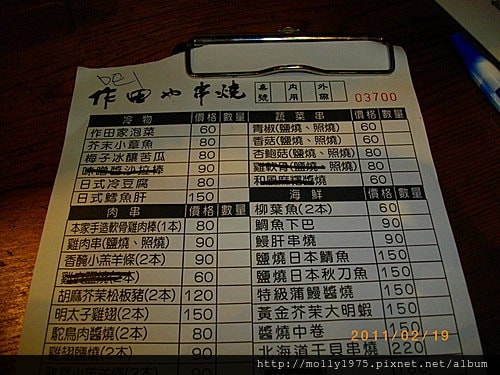 作田や串燒
桌號 內用 外帶
03700
冷物 價格 數量
作田家泡菜 60
芥末小章魚 80
梅子冰釀苦瓜 80
味噌醬沙拉棒 90
日式冷豆腐 80
日式鱈魚肝 150
肉串 價格 數量
本家手造軟骨雞肉棒(1本) 80
雞肉串(鹽燒、照燒) 90
香醃小羔羊條(2本) 90
60
胡麻芥茉松板豬(2本) 120
明太子雞翅(2本) 150
駝鳥肉醬燒(2本) 80
雞翅鹽燒(2本) 90
蔬菜串 價格 數量
青椒(鹽燒、照燒) 60
香菇(鹽燒、照燒) 60
杏鮑菇(鹽燒、照燒) 80
雞軟骨(鹽燒、照燒) 80
和風麻糬醬燒 60
海鮮 價格 數量
柳葉魚(2本) 60
鯛魚下巴 90
鰻肝串燒 90
鹽燒日本鯖魚 150
鹽燒日本秋刀魚 150
特級蒲鰻醬燒 150
黃金芥茉大明蝦 150
醬燒中卷 150
北海道干貝串燒 220
2011/02/19
http://molly1975.pixnet.net/album